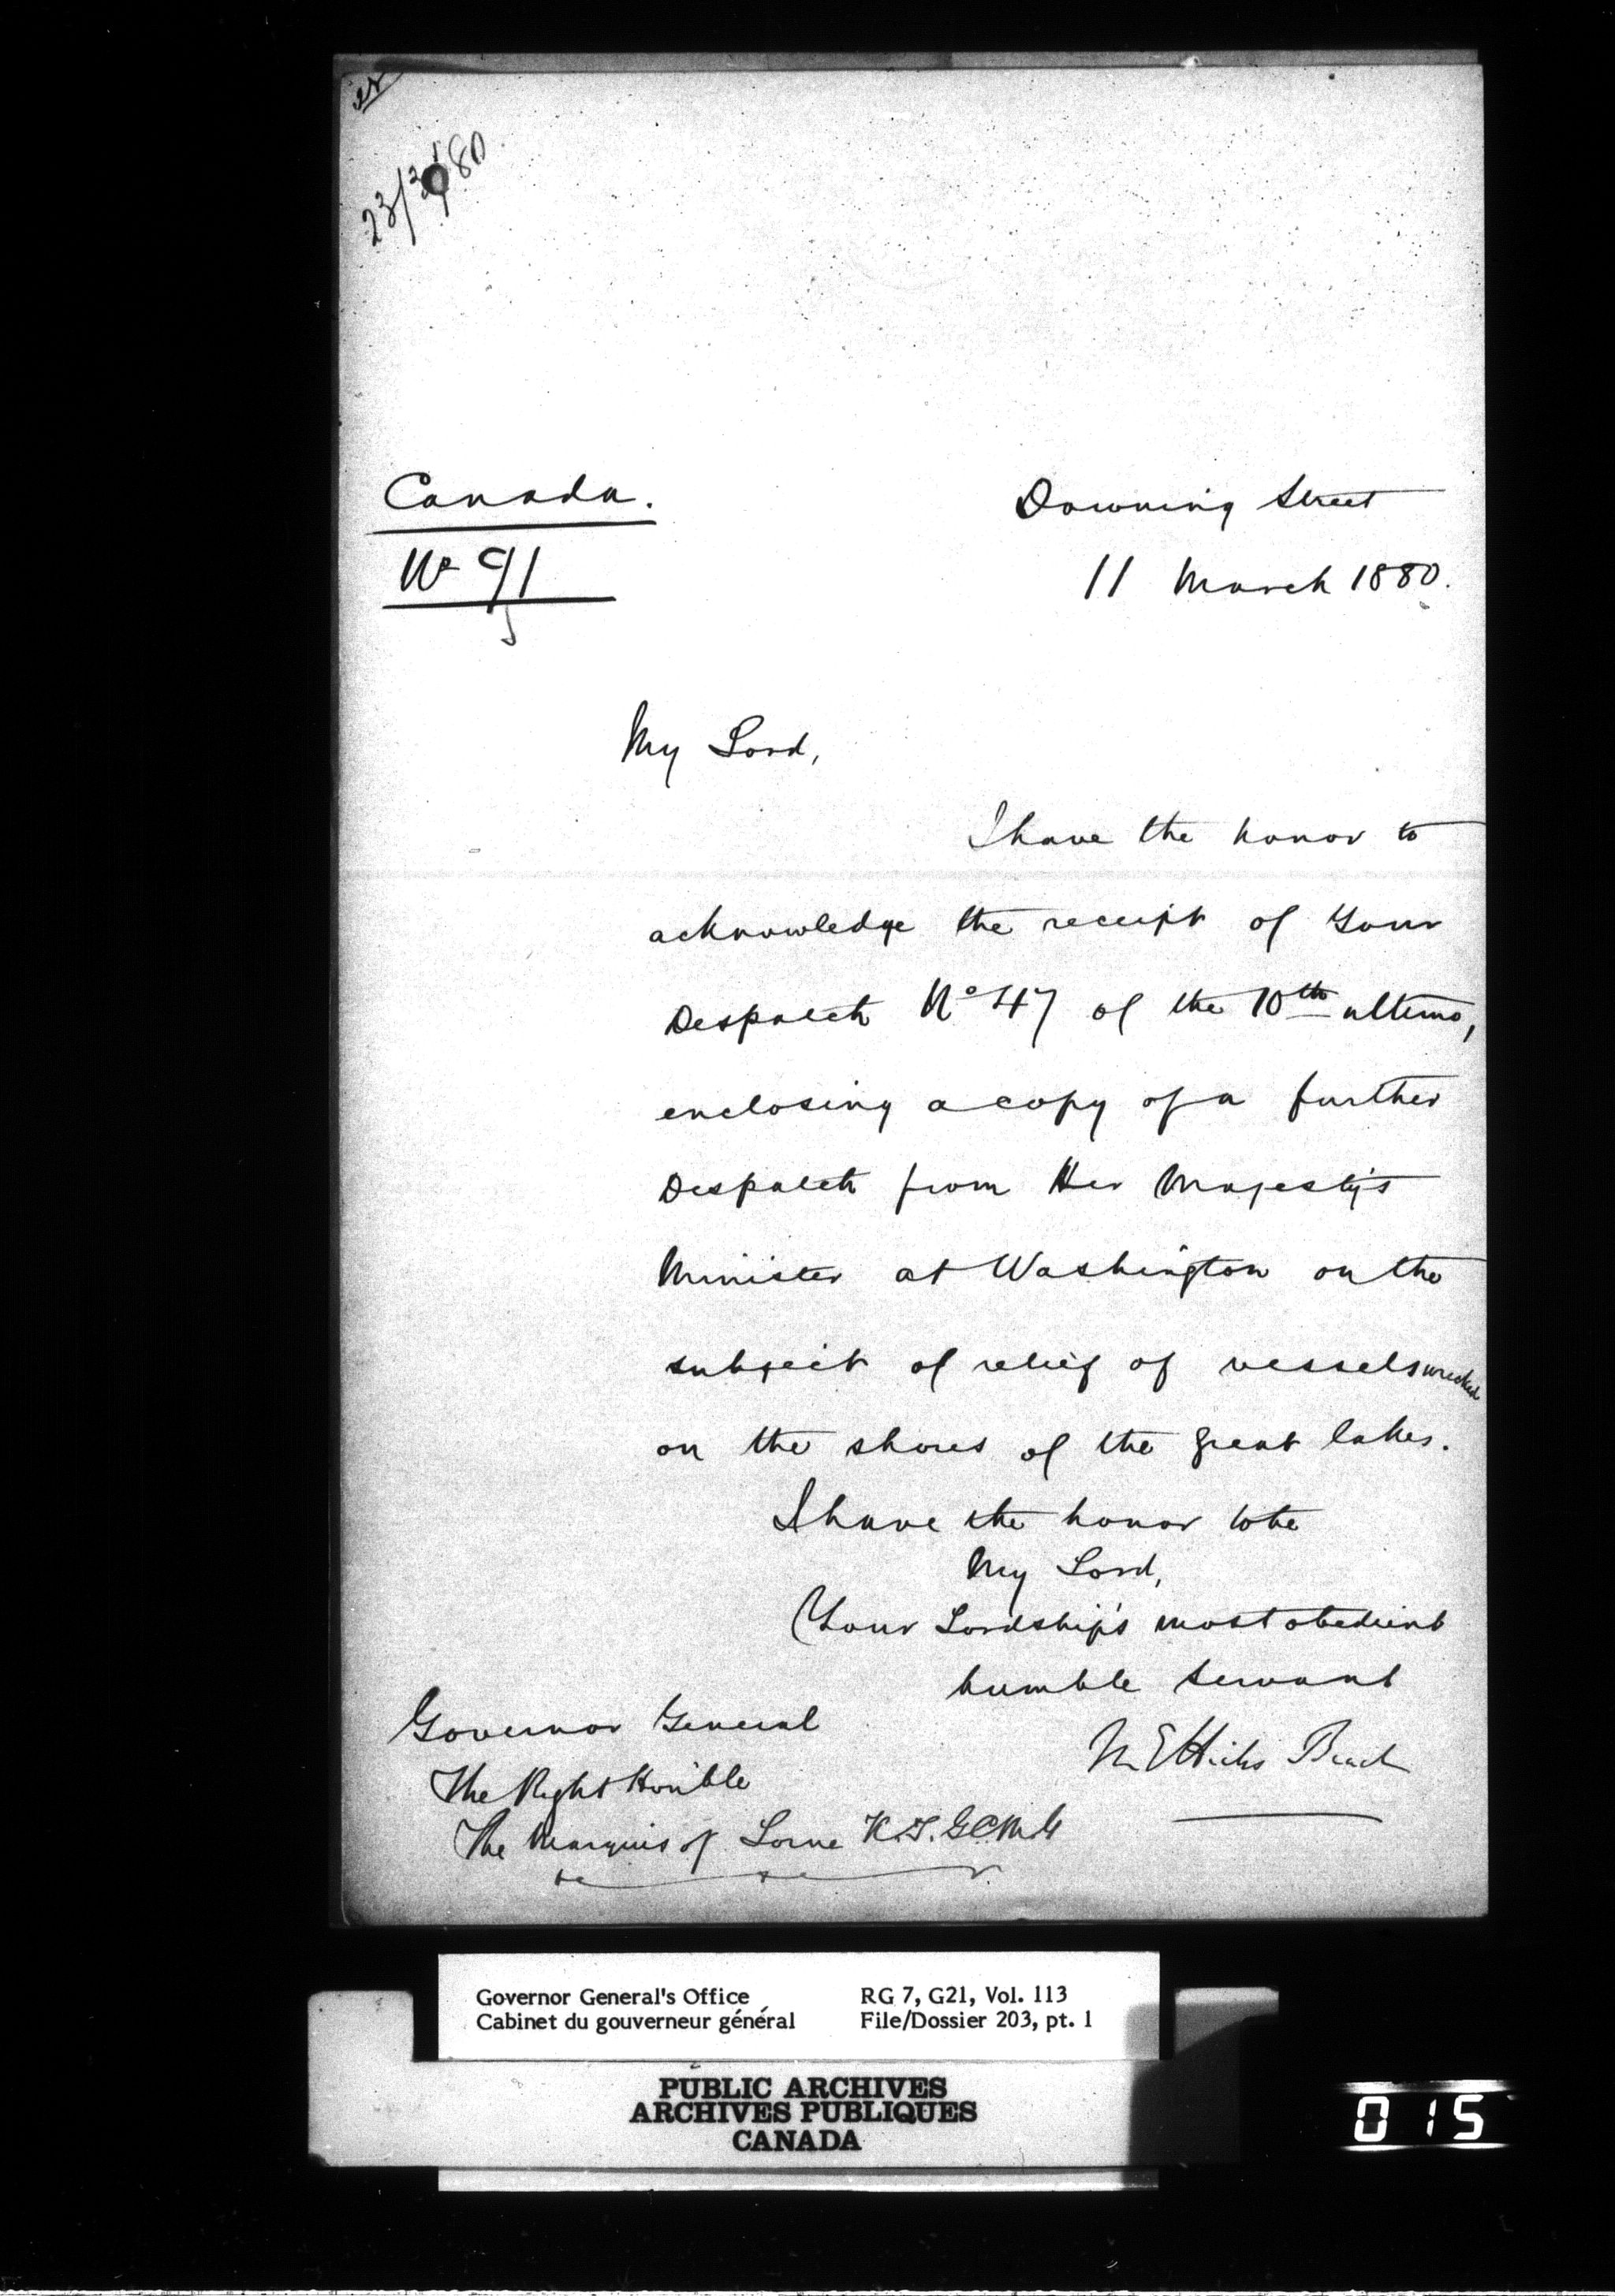 23/3/80
Canada.
No 91
Downing Street
11 March 1880.
My Lord,
I have the honor to
acknowledge the receipt of Your
Despatch No 47 of the 10th ultimo,
enclosing a copy of a further
Despatch from Her Majesty's
Minister at Washington on the
subject of relief of vessels wrecked
on the shores of the great lakes.
I have the honor to be
My Lord,
Your Lordship's most obedient
humble servant
M E Hicks Beach
Governor General
The Right Honble
The Marquis of Lorne K.T. GCMG
Governor General's Office
Cabinet du gouverneur général
RG 7, G21, Vol. 113
File/Dossier 203, pt. 1
PUBLIC ARCHIVES
ARCHIVES PUBLIQUES
CANADA
015